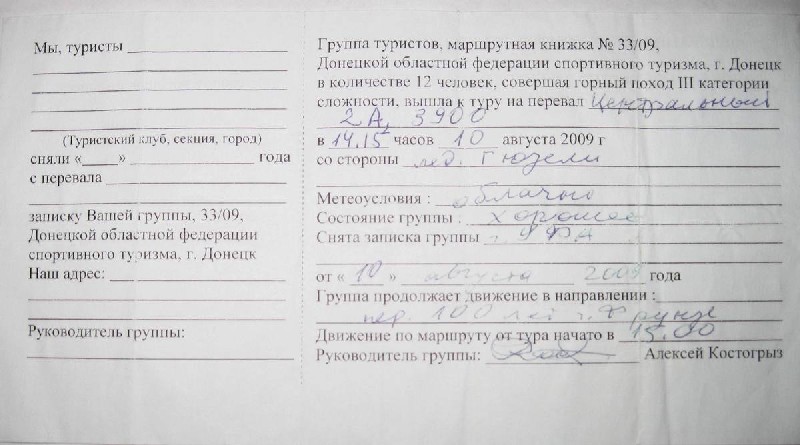 Мы, туристы
(Туристский клуб, секция, город)
сняли «    »     года
с перевала
записку Вашей группы, 33/09,
Донецкой областной федерации
спортивного туризма, г. Донецк
Наш адрес:
Руководитель группы:
Группа туристов, маршрутная книжка № 33/09,
Донецкой областной федерации спортивного туризма, г. Донецк
в количестве 12 человек, совершая горный поход III категории
сложности, вышла к туру на перевал Центральный
2А, 3900
в 14.15 часов 10 августа 2009 г
со стороны лед. Гюзели
Метеоусловия : облачно
Состояние группы : хорошее
Снята записка группы г. УФА
от « 10 » августа 2009 года
Группа продолжает движение в направлении :
пер. 100 лет г. Фрунзе
Движение по маршруту от тура начато в 15.00
Руководитель группы: Алексей Костогрыз